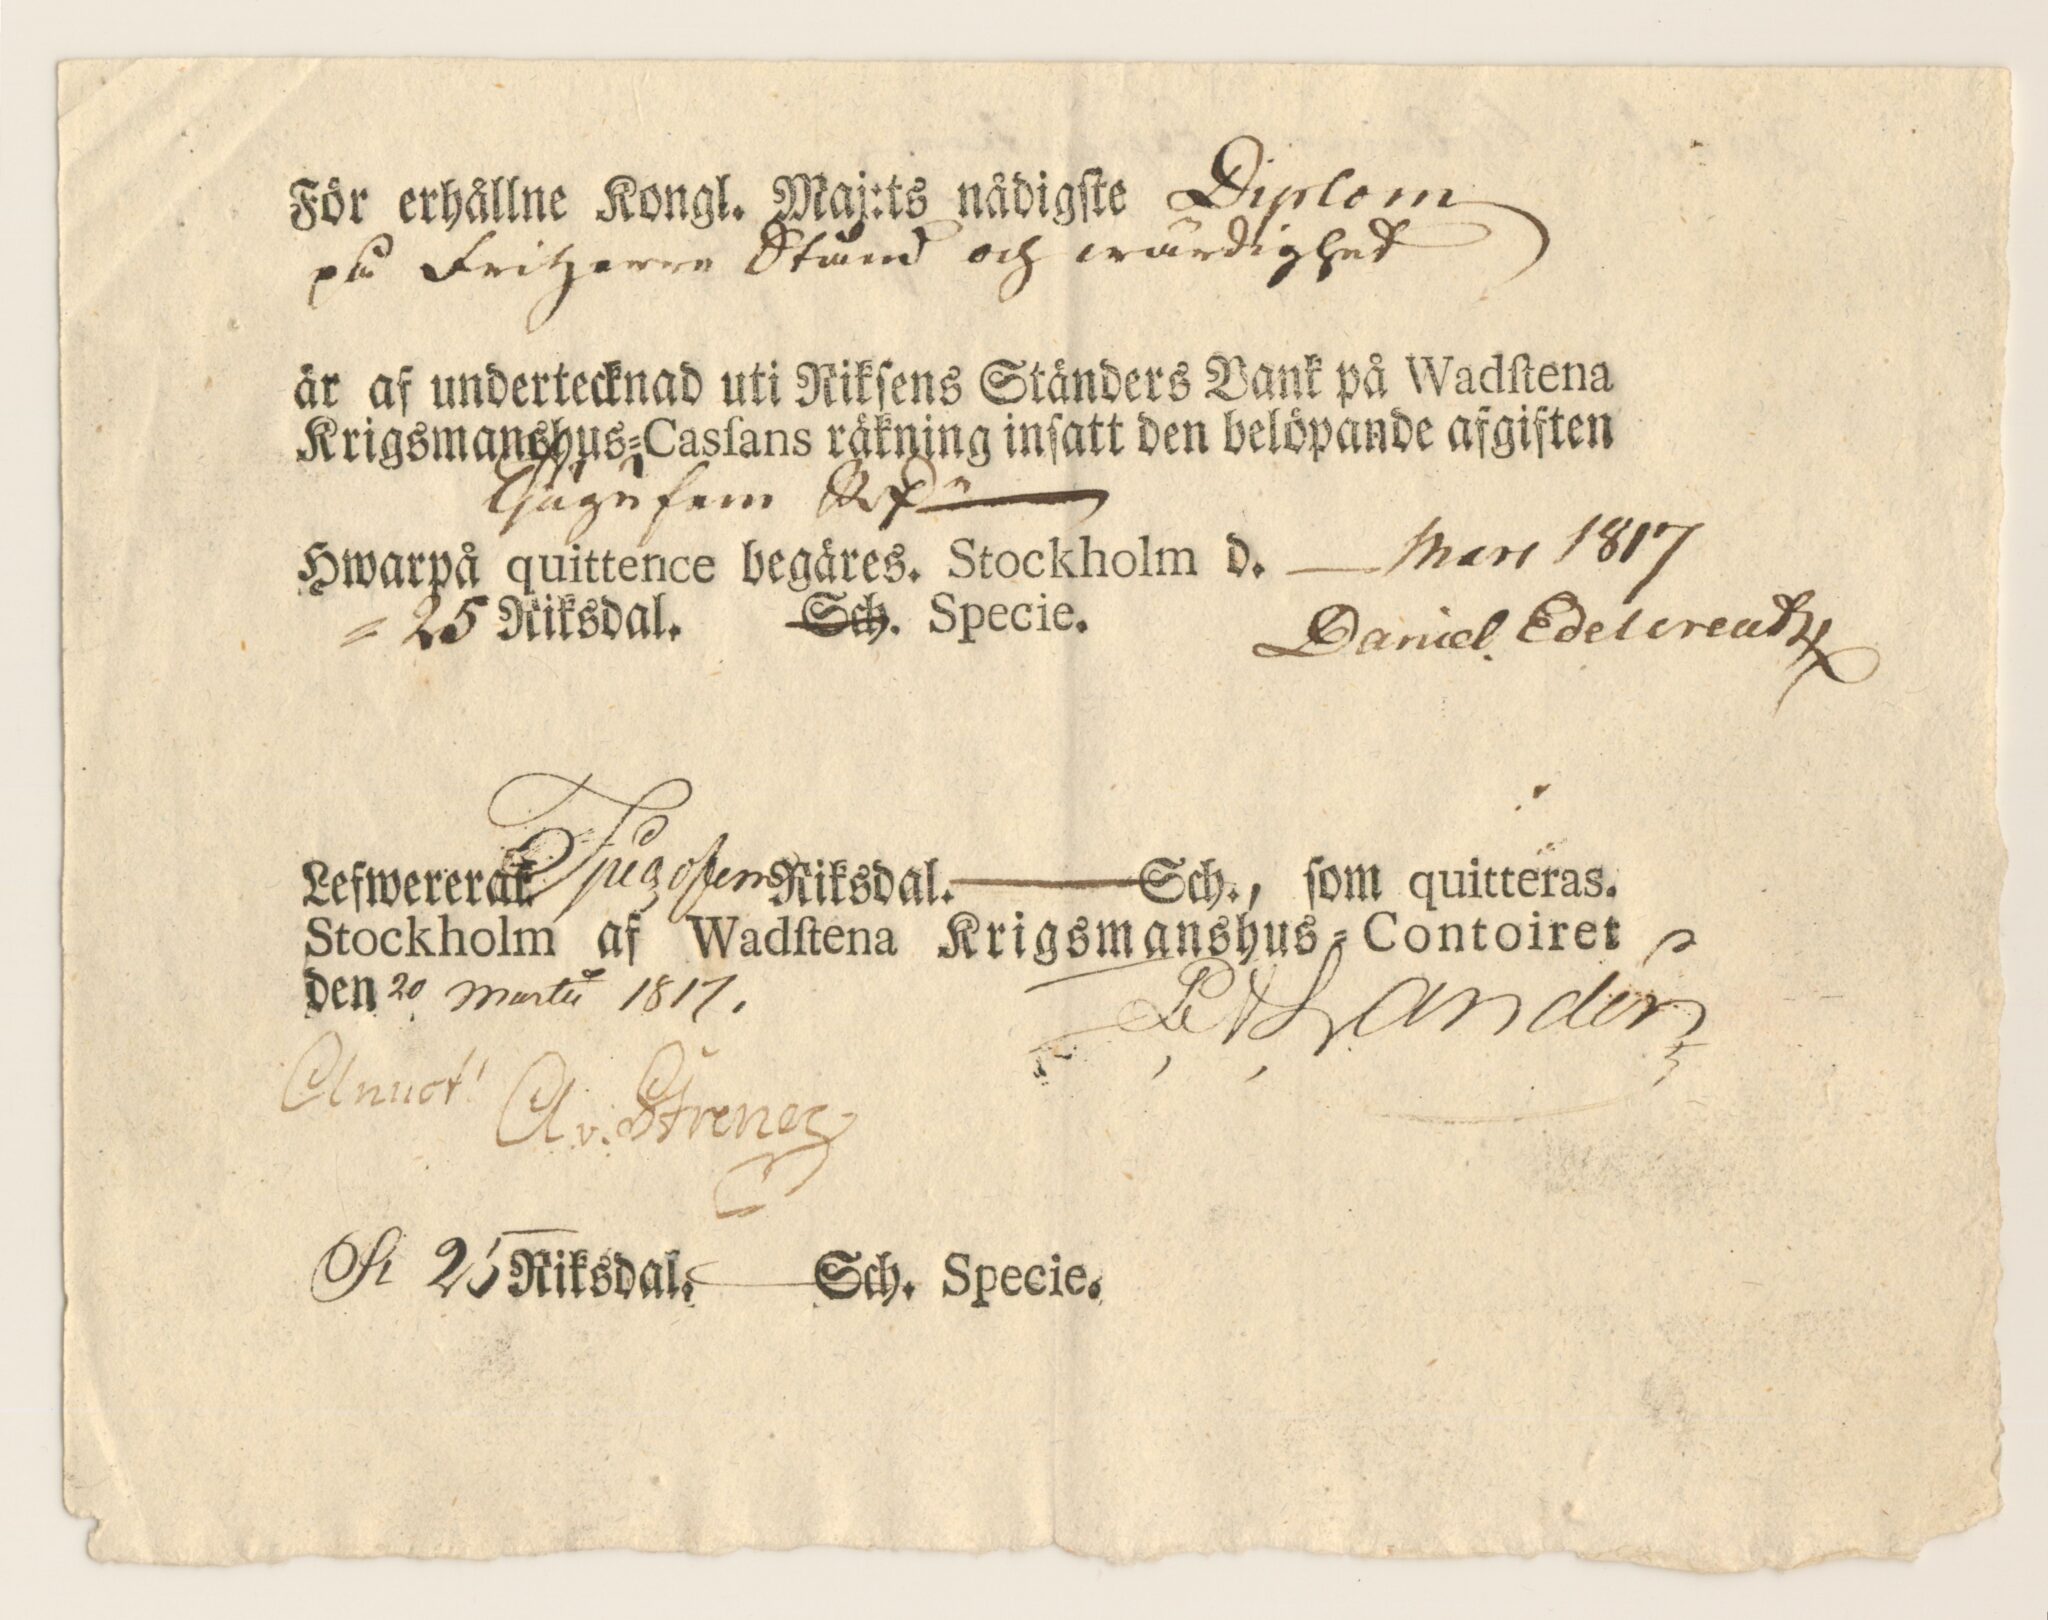 För erhållne Kongl. Maj:ts nådigste Diplom
på Friherre Stånd och wärdighet
är af undertecknad uti Riksens Ständers Bank på Wadstena
Krigsmanshus-Cassans räkning insatt den belöpande afgiften
Tjugufem Rd
Hwarpå quittence begäres. Stockholm d. — Mars 1817
= 25 Riksdal. Sch. Specie. Daniel Edelcreutz
Lefwererat Tjugofem Riksdal. — Sch., som quitteras.
Stockholm af Wadstena Krigsmanshus-Contoiret
den 20 Martii 1817.
Landén
Annot! A v. Strenez
25 Riksdal. — Sch. Specie.